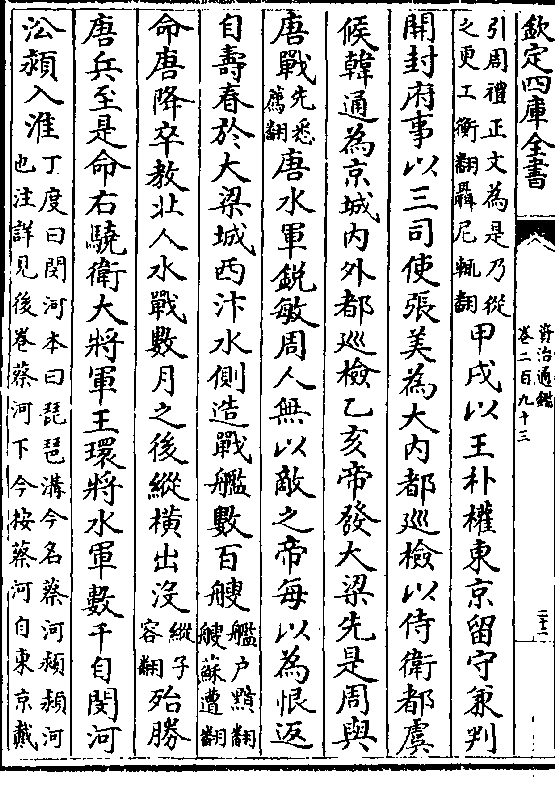 欽定四庫全書
資治通鑑
卷二百九十三
二十二
引周禮正文為是乃從
之更工衡翻聶尼輒翻
甲戌以王朴權東京留守兼判
開封府事以三司使張美為大内都巡檢以侍衛都虞
候韓通為京城内外都巡檢乙亥帝發大梁先是周與
唐戰
先悉
薦翻
唐水軍鋭敏周人無以敵之帝每以為恨返
自壽春於大梁城西汴水側造戰艦數百艘
艦户黯翻
艘蘇遭翻
命唐降卒教北人水戰數月之後縱横出沒
縱子
容翻
殆勝
唐兵至是命右驍衛大將軍王環將水軍數千自閔河
㳂潁入淮
丁度曰閔河本曰琵琶溝今名蔡河潁潁河
也注詳見後卷蔡河下今按蔡河自東京戴